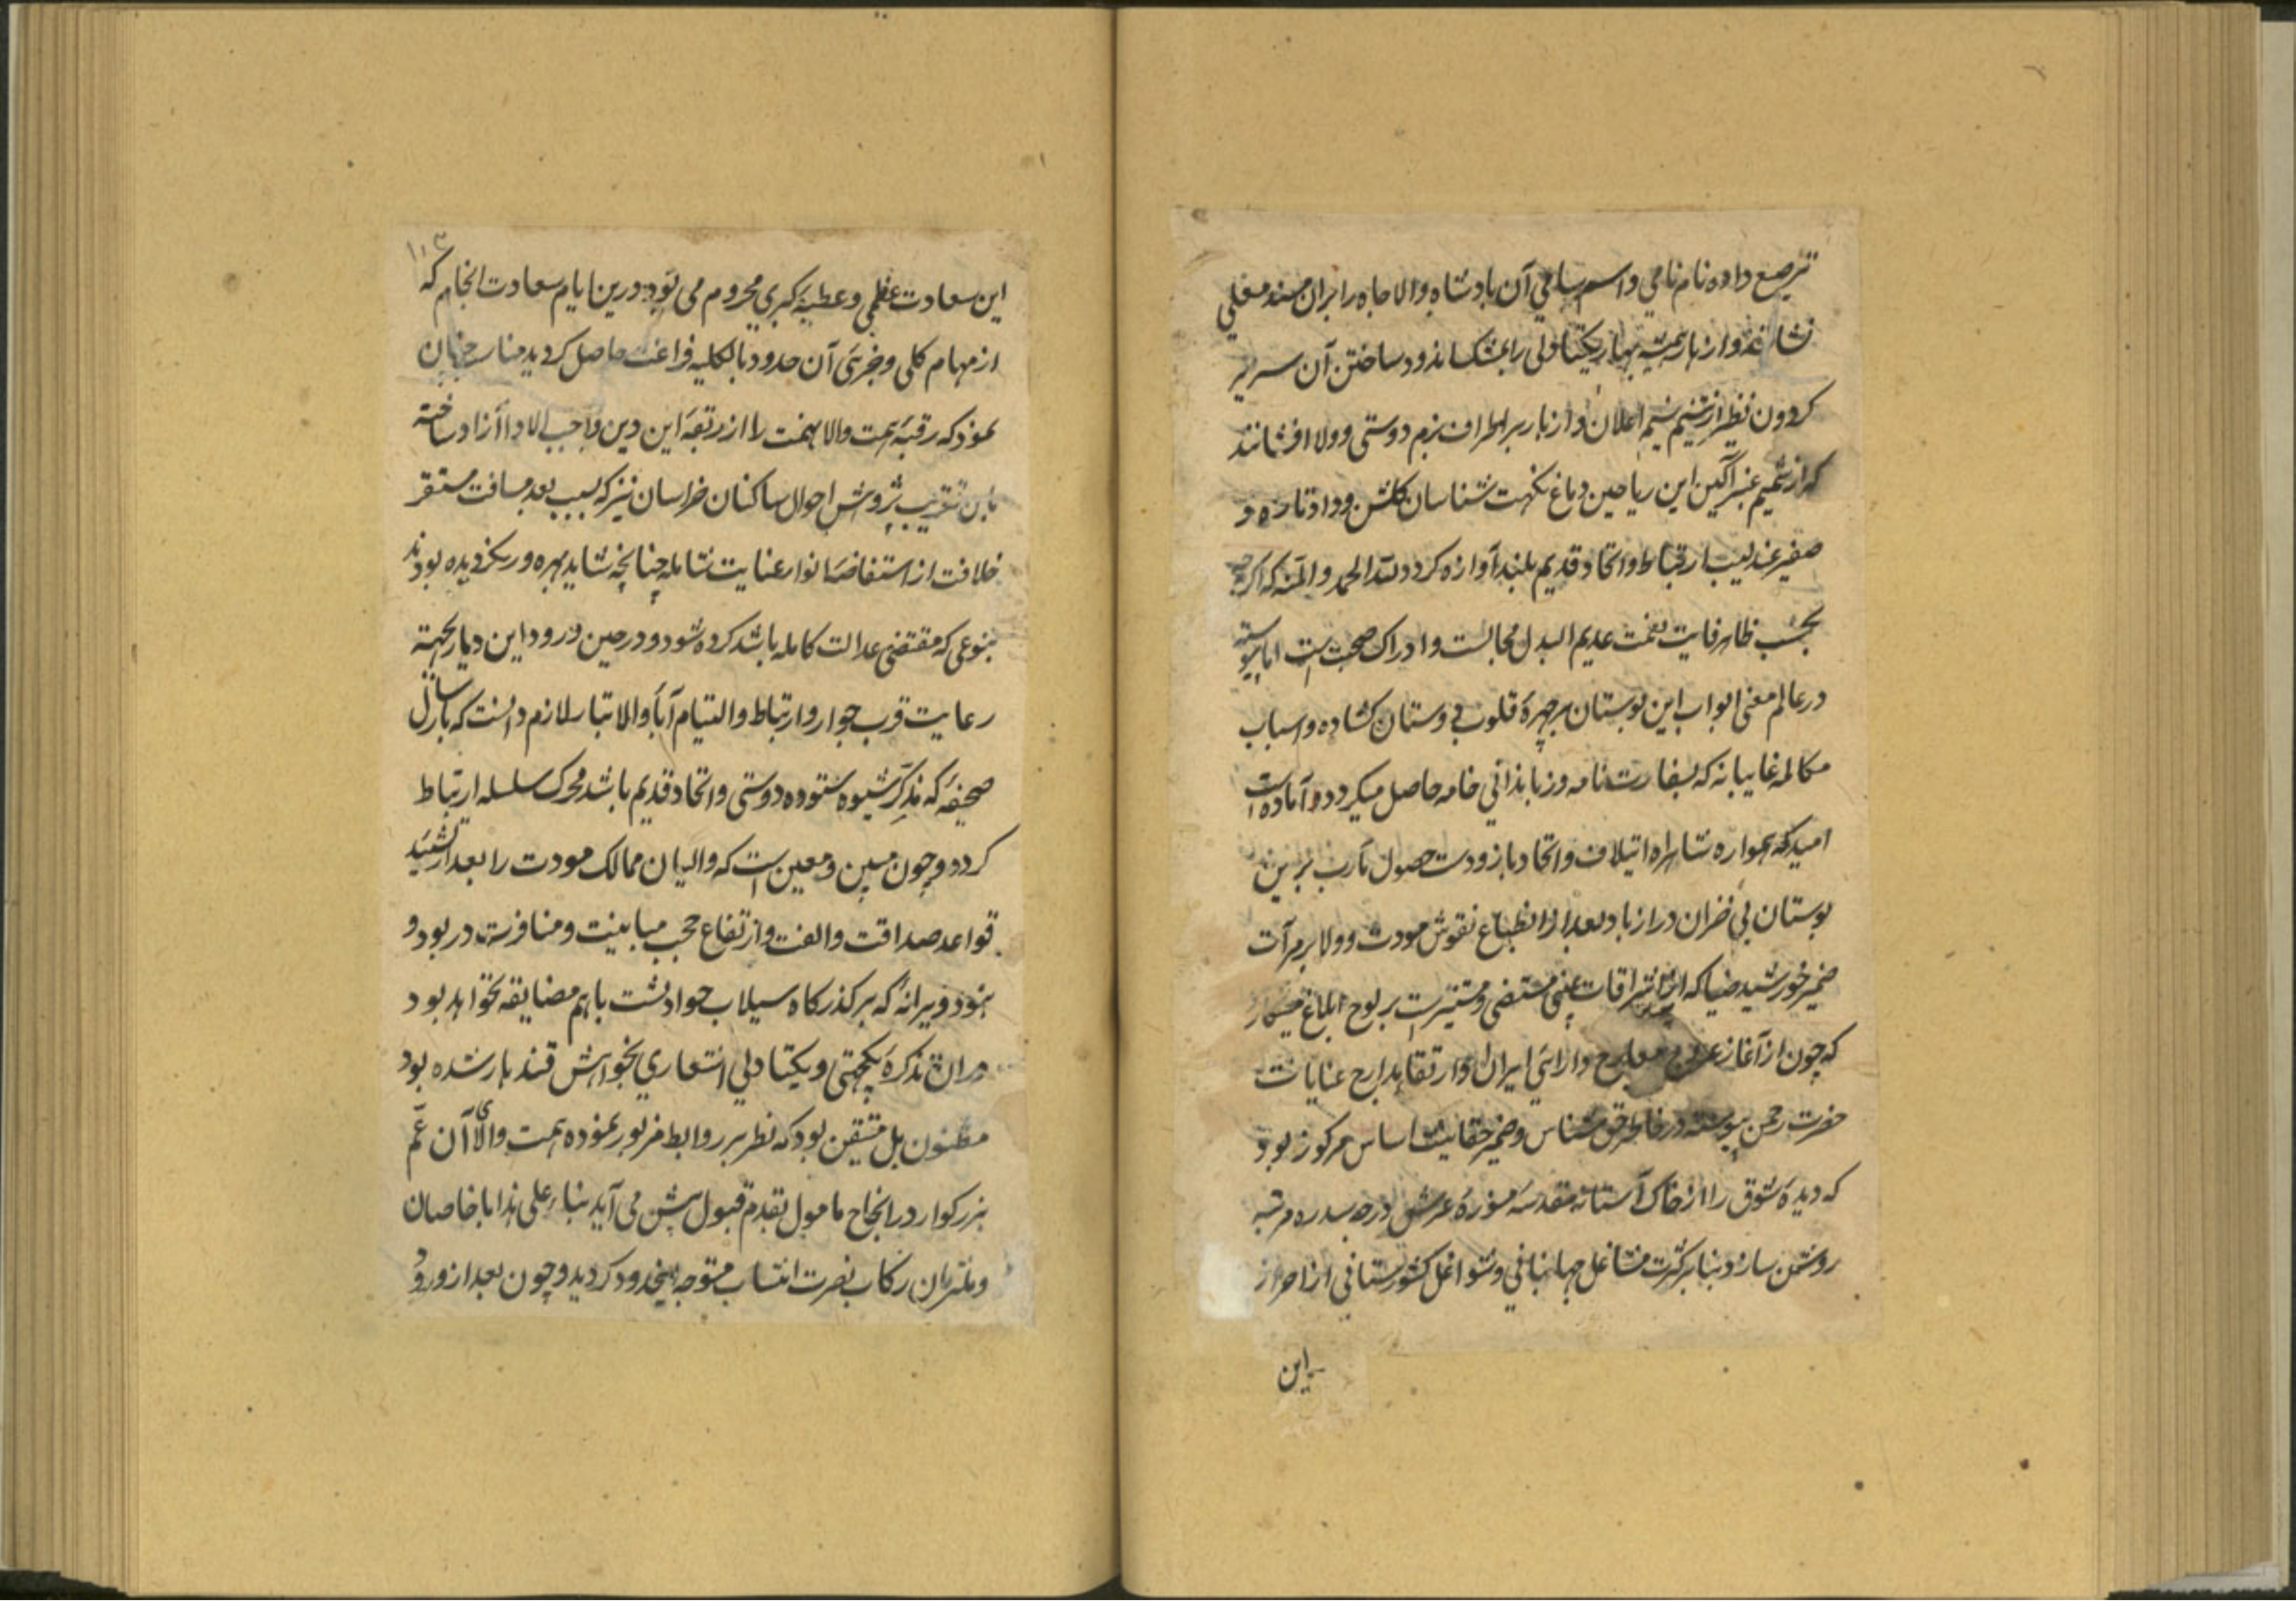 ترصیع داده نام نامی و اسم سامی آن پادشاه والا جاه را بران مسند معلی
نشانند و ازهار همیشه بهار یکتادلی را بمشک اندود ساختن آن سریر
کردون نظیر از تنسیم نسیم اعلان و ازبار بر اطراف بزم دوستی و ولا افشانند
که از شمیم عنبر آکین این ریاحین دماغ نکهت شناسان کلشن وداد تازه و
صفیر عندلیب ارتباط و اتحاد قدیم بلند آوازه کردد لله الحمد و المنه که اکرچه
بحسب ظاهر فایت نعمت عدیم البدل مجالست و ادراک صحبت است اما پیوسته
در عالم معنی ابواب این بوستان بر چهرهٔ قلوب دوستان کشاده و اسباب
مکالمه غایبانه که بسفارت نامه و زباندانی خامه حاصل میکردد آماده است
امید که همواره شاهراه ایتلاف و اتحاد باز و دست حصول مآرب برین
بوستان بی خزان دراز باد بعد از انطباع نقوش مودت و ولا بر مرآت
ضمیر خورشید ضیا که از اشراقات غیبی مستضی و مستنیرست بر لوح ابلاغ
که چون از آغاز عروج معارج دارائی ایران و ارتقا بمدارج عنایات
حضرت رحمن پیوسته در خاطر حق شناس و ضمیر حقانیت اساس مرکوز بود
که دیدهٔ شوق را از خاک آستانه مقدسه منورهٔ عرش درجه سدره مرتبه
روشن سازد بنابر کثرت مشاغل جهانبانی و شواغل کشورستانی از احراز
این
۱۰۳
این سعادت عظمی و عطیهٔ کبری محروم می بود درین ایام سعادت انجام که
از مهام کلی و جزئی آن حدود بالکلیه فراغت حاصل کردید مناسب چنان
نمود که رقبهٔ همت والا نهمت را از ربقهٔ این دین واجب الادا آزاد ساخته
باین تقریب پژوهش احوال ساکنان خراسان نیز که بسبب بعد مسافت مستقر
خلافت از استفاضهٔ انوار عنایت شامله چنانچه شاید بهره ور نکردیده بودند
بنوعی که مقتضی عدالت کامله باشد کرده شود و در حین ورود این دیار بجهة
رعایت قرب جوار و ارتباط و التیام آباء والاتبار لازم دانست که بارسال
صحیفهٔ که مذکر شیوه ستوده دوستی و اتحاد قدیم باشد محرک سلسله ارتباط
کردد و چون مبین و معین است که والیان ممالک مودت را بعد از تشیید
قواعد صداقت و الفت و ارتفاع حجب مباینت و منافرت در بود و
نبود ویرانهٔ که بر کذرکاه سیلاب حوادثست باهم مضایقه نخواهد بود
دران تذکرهٔ یکجهتی و یکتادلی اشعاری بخواهش قندهار شده بود
مظنون بل متیقن بود که نظر بر روابط مزبور نموده همت والای آن عم
بزرکوار در انجاح مامول بقدم قبول پیش می آید بناء علی هذا با خاصان
و ملتزمان رکاب نصرت انتساب متوجه اینحدود کردید و چون بعد از ورود